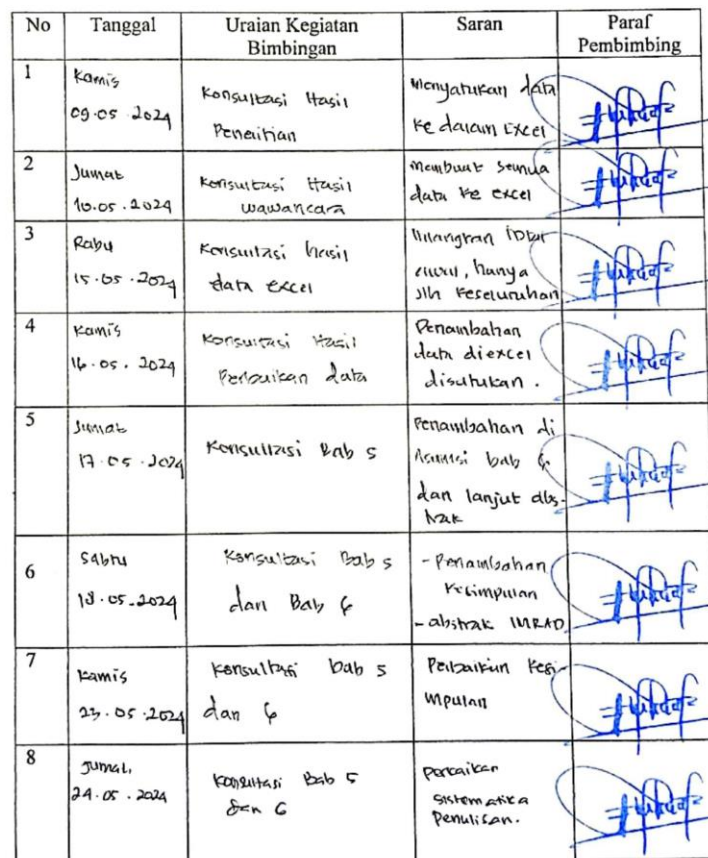 No Tanggal Uraian Kegiatan Bimbingan Saran Paraf Pembimbing
1
Kamis
09.05.2024
Konsultasi Hasil
Penelitian
Menyatukan data
ke dalam Excel
2
Jumat
10.05.2024
Konsultasi Hasil
wawancara
membuat semua
data ke excel
3
Rabu
15.05.2024
Konsultasi hasil
data excel
hanya
Jlh keseluruhan
4
Kamis
16.05.2024
Konsultasi Hasil
Perbaikan data
Penambahan
data diexcel
disatukan.
5
Jumat
17.05.2024
Konsultasi Bab 5
Penambahan di
bab 6
dan lanjut abs-
trak
6
Sabtu
18.05.2024
Konsultasi Bab 5
dan Bab 6
- Penambahan
Kesimpulan
- abstrak IMRAD
7
Kamis
23.05.2024
Konsultasi bab 5
dan 6
Perbaikan Kesi-
mpulan
8
Jumat,
24.05.2024
Konsultasi Bab 5
dan 6
perbaikan
sistematika
Penulisan.